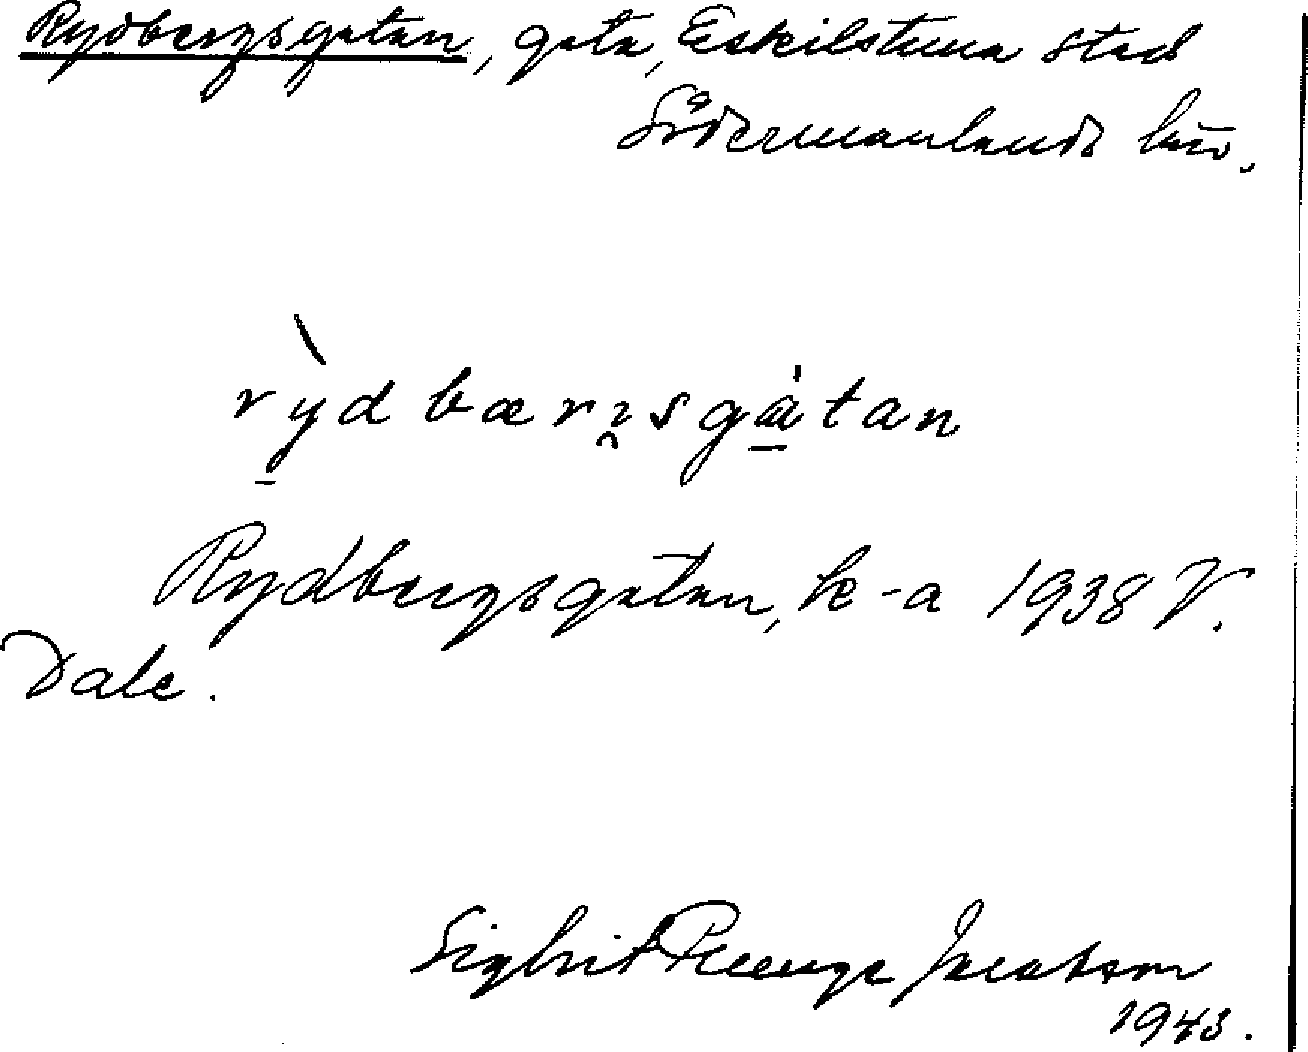 Rydbergsgatan, gata, Eskilstuna stad
Södermanlands län.
rỳdbærısgàtan
Rydbergsgatan, k-a 1938 V.
Dale.
Sigbrit Plænge Jacobson
1943.